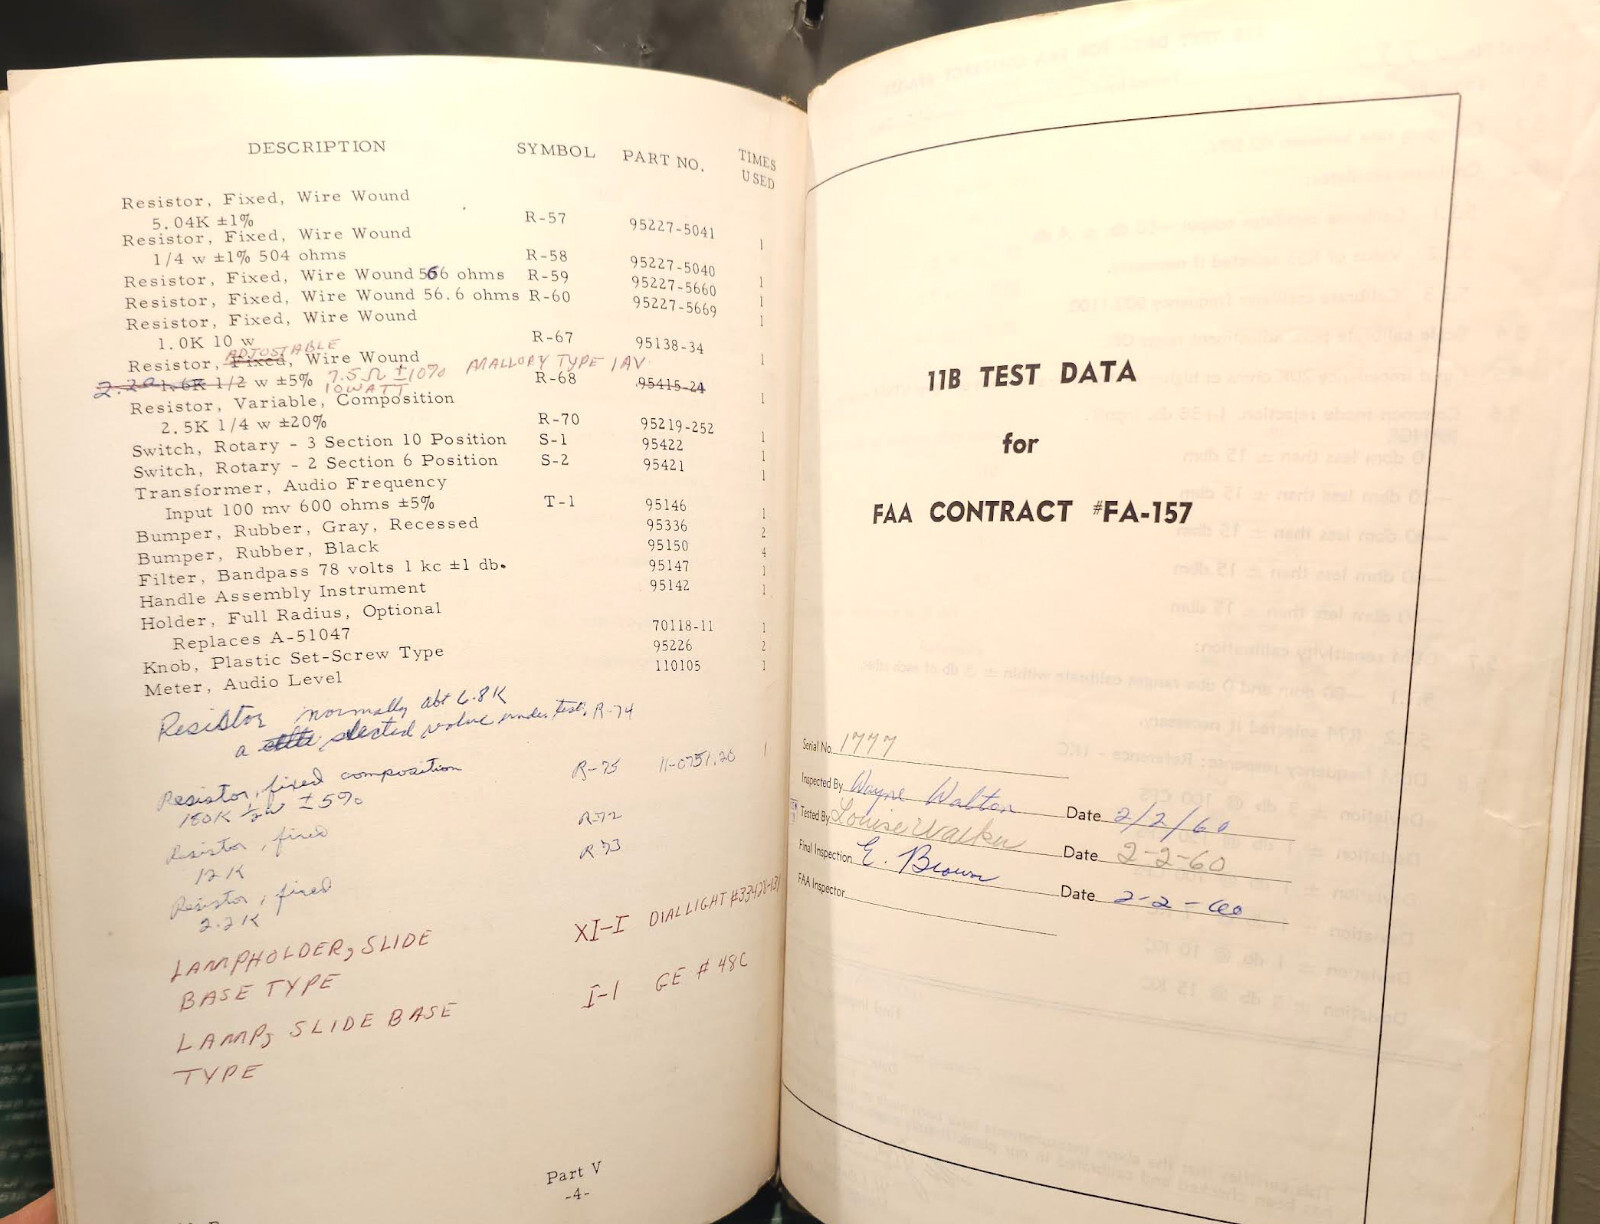 DESCRIPTION SYMBOL PART NO. TIMES USED
Resistor, Fixed, Wire Wound
5.04K ±1% R-57 95227-5041 1
Resistor, Fixed, Wire Wound
1/4 w ±1% 504 ohms R-58 95227-5040 1
Resistor, Fixed, Wire Wound 566 ohms R-59 95227-5660 1
Resistor, Fixed, Wire Wound 56.6 ohms R-60 95227-5669 1
Resistor, Fixed, Wire Wound
1.0K 10 w R-67 95138-34 1
ADJUSTABLE
Resistor, Fixed, Wire Wound MALLORY TYPE 1AV
1.6K 1/2 w ±5% 7.5Ω ±10% R-68 95415-24 1
10WATT
Resistor, Variable, Composition
2.5K 1/4 w ±20% R-70 95219-252 1
Switch, Rotary - 3 Section 10 Position S-1 95422 1
Switch, Rotary - 2 Section 6 Position S-2 95421 1
Transformer, Audio Frequency
Input 100 mv 600 ohms ±5% T-1 95146 1
Bumper, Rubber, Gray, Recessed 95336 2
Bumper, Rubber, Black 95150 4
Filter, Bandpass 78 volts 1 kc ±1 db. 95147 1
Handle Assembly Instrument 95142 1
Holder, Full Radius, Optional
Replaces A-51047 70118-11 1
Knob, Plastic Set-Screw Type 95226 2
Meter, Audio Level 110105 1
Resistor normally abt 6.8K
a selected value under test. R-74
Resistor, fixed composition R-75 11-0751,20 1
180K 1/2w ±5%
Resistor, fixed R-72
12K
Resistor, fixed R-73
2.2K
LAMPHOLDER, SLIDE XI-I DIALLIGHT
BASE TYPE
LAMP, SLIDE BASE I-1 GE # 48C
TYPE
Part V
-4-
11B TEST DATA
for
FAA CONTRACT #FA-157
Serial No. 1777
Inspected By Wayne Walton Date 2/2/60
Tested By Louise Walker Date 2-2-60
Final Inspection E. Brown Date 2-2-60
FAA Inspector